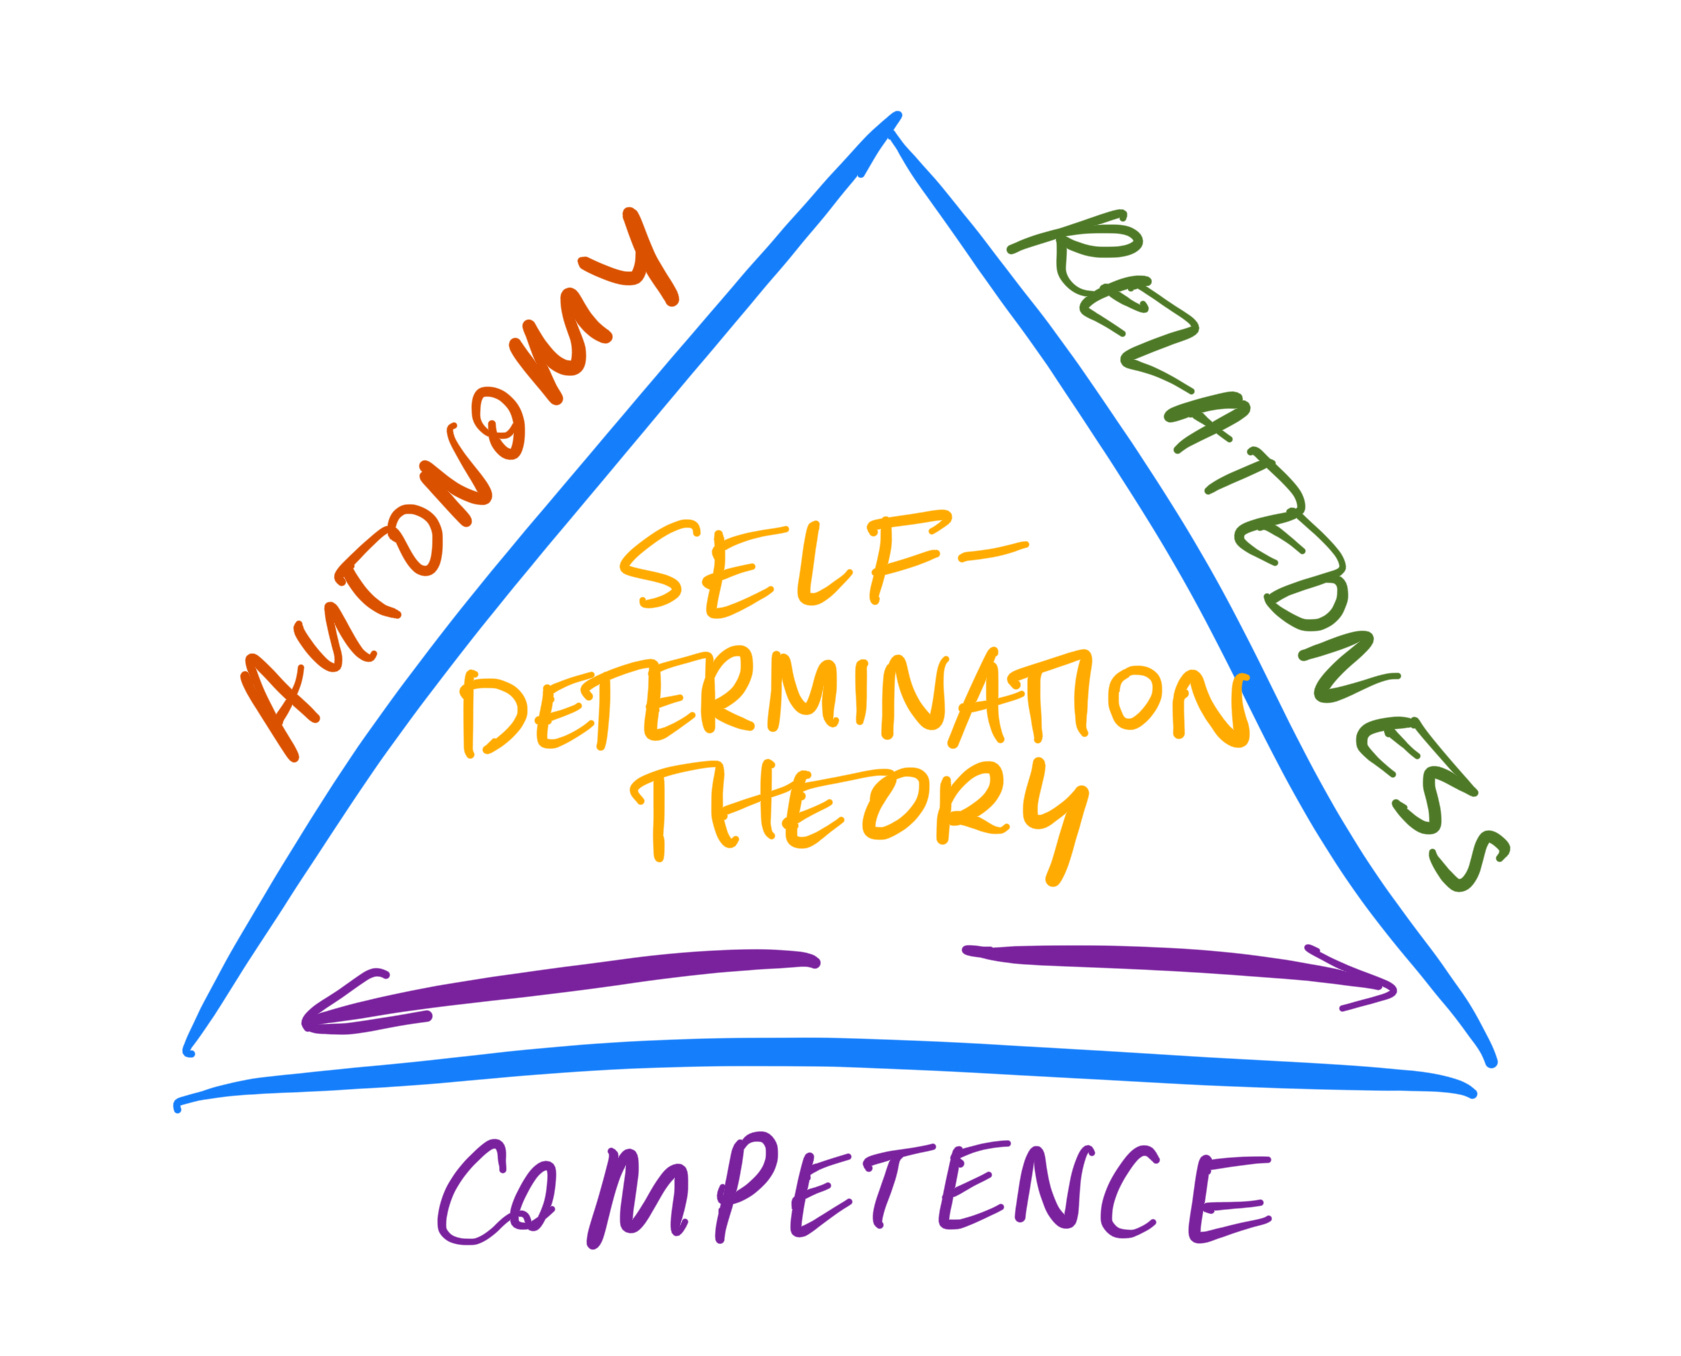 AUTONOMY
RELATEDNESS
SELF-
DETERMINATION
THEORY
COMPETENCE